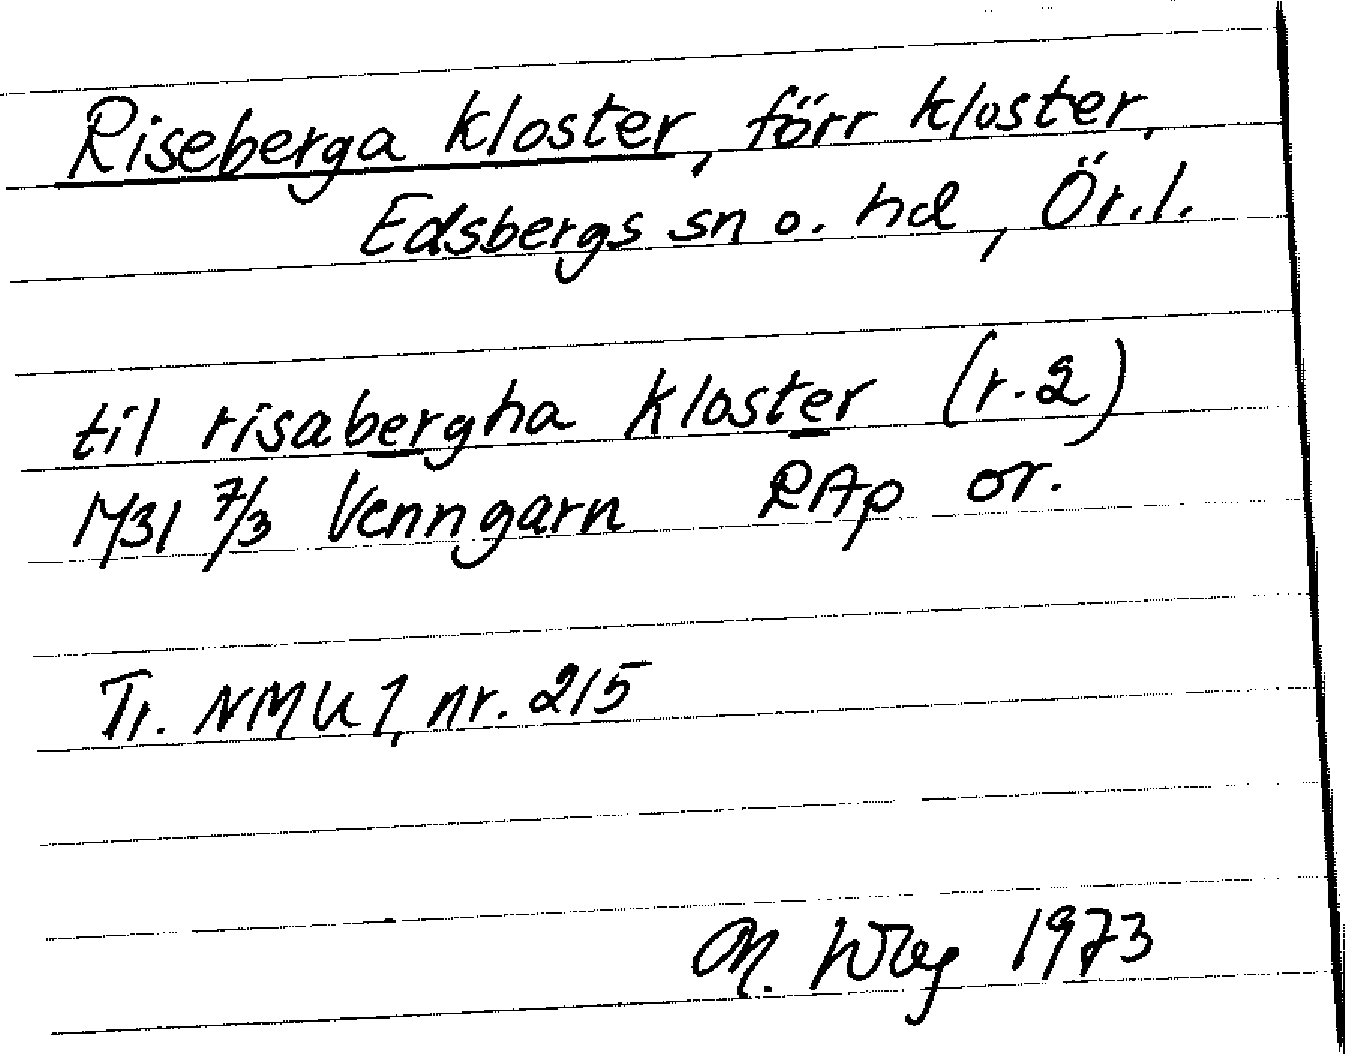 Riseberga kloster, förr kloster.
Edsbergs sn o. hd, Ör.l.
til risabergha kloster (r. 2)
1431 7/3 Venngarn RAp or.
Tr. NMU 1, nr. 215
M. 1973